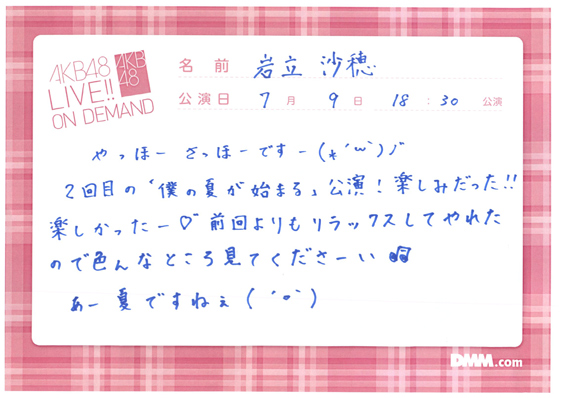 AKB48
LIVE!!
ON DEMAND
AKB
48
名前 岩立 沙穂
公演日 7月 9日 18:30 公演
やっほー さっほーですー(*´ω`)ノ"
2回目の「僕の夏が始まる」公演!楽しみだった!!
楽しかったー♡"前回よりもリラックスしてやれた
ので色んなところ見てくださーい♫
あー夏ですねぇ(´o`)
DMM.com